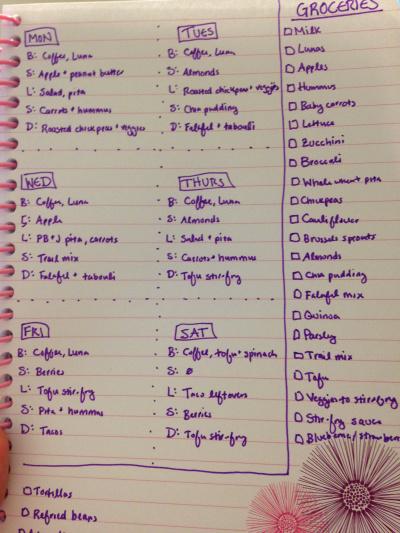 MON
B: Coffee, Luna
S: Apple + peanut butter
L: Salad, pita
S: Carrots + hummus
D: Roasted chickpeas + veggies
TUES
B: Coffee, Luna
S: Almonds
L: Roasted chickpeas + veggies
S: Chia pudding
D: Falafel + tabouli
WED
B: Coffee, Luna
S: Apple
L: PB+J pita, carrots
S: Trail mix
D: Falafel + tabouli
THURS
B: Coffee, Luna
S: Almonds
L: Salad + pita
S: Carrots + hummus
D: Tofu stir-fry
FRI
B: Coffee, Luna
S: Berries
L: Tofu stir-fry
S: Pita + hummus
D: Tacos
SAT
B: Coffee, tofu + spinach
S: ø
L: Taco leftovers
S: Berries
D: Tofu stir-fry
GROCERIES
Milk
Lunas
Apples
Hummus
Baby carrots
Lettuce
Zucchini
Broccoli
Whole wheat pita
Chickpeas
Cauliflower
Brussels sprouts
Almonds
Chia pudding
Falafel mix
Quinoa
Parsley
Trail mix
Tofu
Veggies to stir-fry
Stir-fry sauce
Blueberries/strawberr
Tortillas
Refried beans